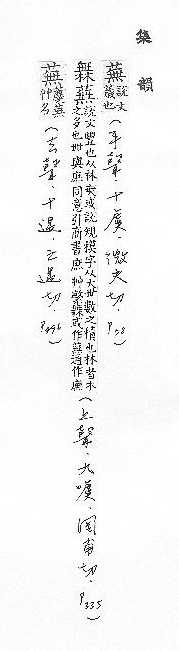 集韻
蕪說文薉也（平聲．十虞．微夫切．P78）
橆蕪說文豐也从林奭或說規模字从大卌數之積也林者木之多也卌與庶同意引商書庶艸繁橆或作蕪通作廡（上聲．九噳．罔甫切．P335）
蕪蕪艸名（去聲．十遇．亡遇切．P496）